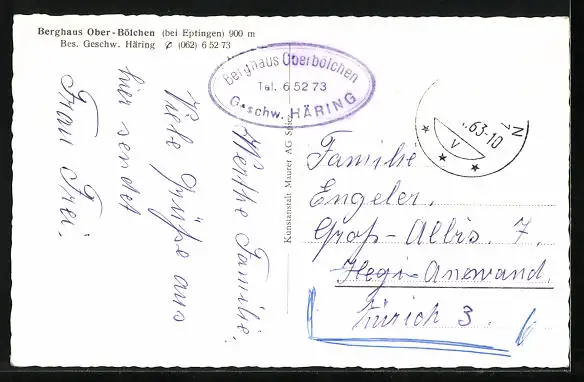 Berghaus Ober-Bölchen (bei Eptingen) 900 m
Bes. Geschw. Häring ✆ (062) 6 52 73
Berghaus Oberbölchen
Tel. 6 52 73
Geschw. HÄRING
.63-10
V
Kunstanstalt Maurer AG Spiez
Werthe Familie,
Viele Grüße aus
hier sendet
Frau Frei.
Familie
Engeler.
Groß-Albis. 7.
Hegi-Anewand.
Zürich 3.